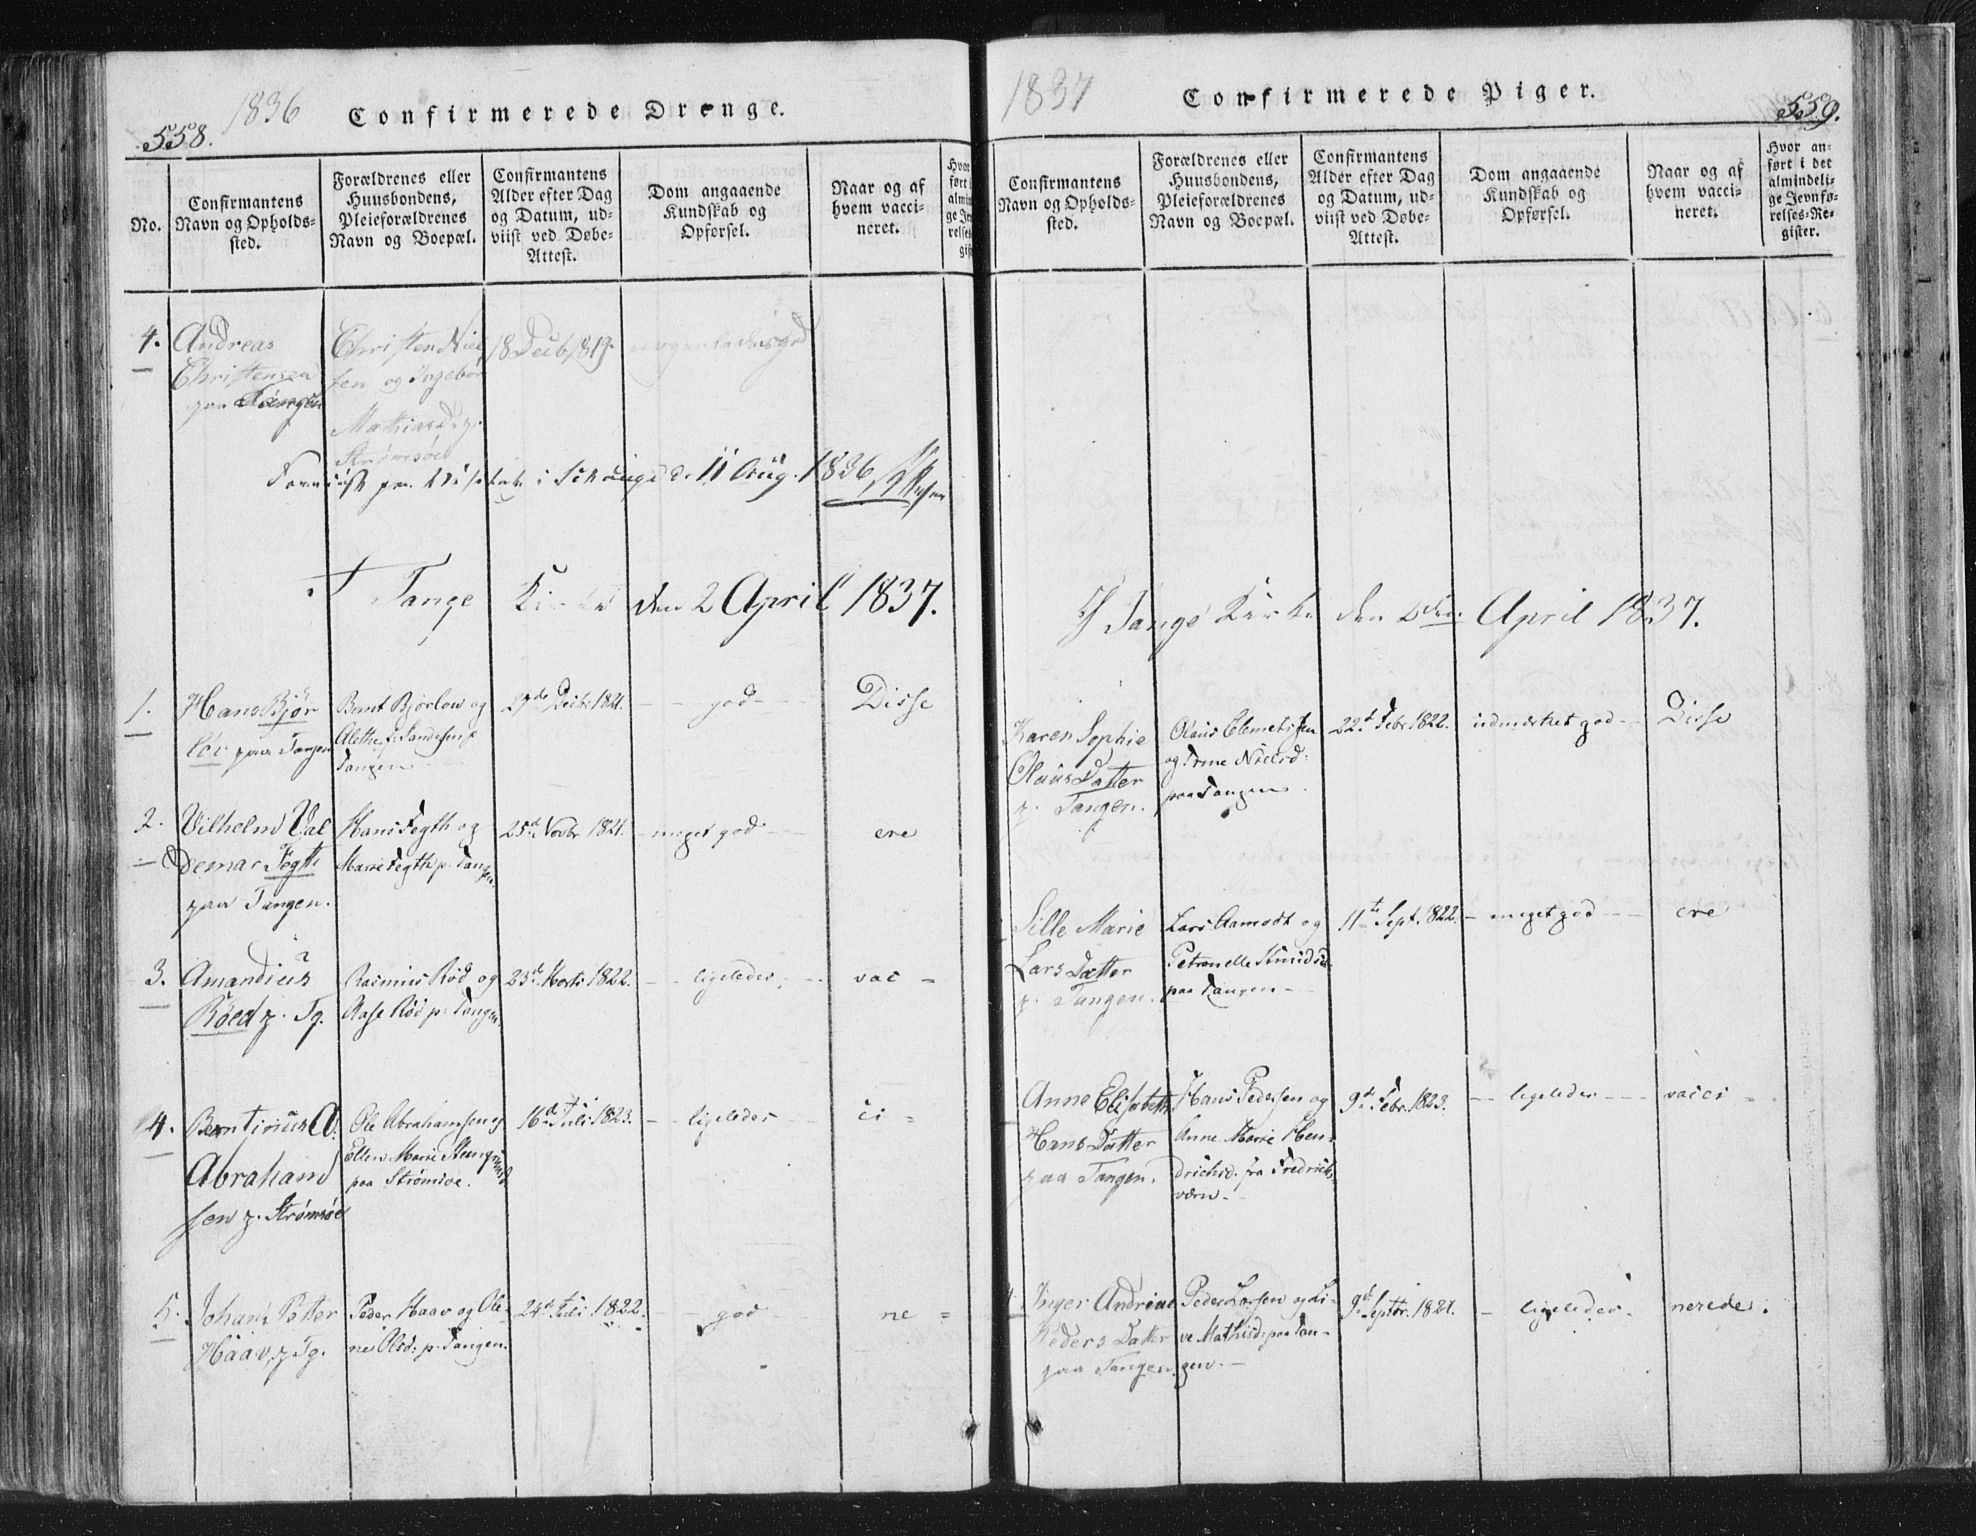 1836
Confirmerede Drenge.
558.
No.
Confirmantens
Navn og Opholds-
sted.
Forældrenes eller
Huusbondens,
Pleieforældrenes
Navn og Boepæl.
Confirmantens
Alder efter Dag
og Datum, ud-
viist ved Døbe-
Attest.
Dom angaaende
Kundskab og
Opførsel.
Naar og af
hvem vacci-
neret.
4. Andreas
Christensen
paa Tangen
Christen Niel
sen og Ingebor
Mathiasd. p.
Strømsöe
18 Decb 1819.
nogenledes god
i 11 Aug. 1836
I Tange Kirke den 2 April 1837.
1. Hans Bjør
löv paa Tangen
Bernt Bjørlow og
Tangen
29de Decbr 1821.
god
Disse
2. Vilhelm Val
demar Fögth
paa Tangen.
Hans Fegth og
Marie Fegth p. Tangen.
25de Novbr 1821.
meget god
ere
3. Amandius
Röed p. Tg.
Rasmus Röd og
Aase Röd p. Tangen.
23de Marts 1822.
ligeledes
vac -
4. Berntinius A.
Abraham
sen p. Strømsöe
Ole Abrahamsen og
Ellen Marie
paa Strømsöe.
16de Juli 1823.
ligeledes
ci -
5. Johan Peter
Haav, p. Tg.
Peder Haav og Ole-
ne Olsd: p. Tangen.
24de Juli 1822.
god
ne =
1837
Confirmerede Piger.
559.
Confirmantens
Navn og Opholds-
sted.
Forældrenes eller
Huusbondens,
Pleieforældrenes
Navn og Boepæl.
Confirmantens
Alder efter Dag
og Datum, ud-
viist ved Døbe-
Attest.
Dom angaaende
Kundskab og
Opførsel.
Naar og af
hvem vacci-
neret.
Hvor an-
ført i det
almindeli-
ge Jevnfø-
relses-Re-
gister.
I Tange Kirke den 2den April 1837.
Karen Sophie
Olaus Datter
p. Tangen.
Olaus Clemetsen
og Trine Nielsd:
paa Tangen.
22de Febr 1822.
udmærket god
Disse
Sille Marie
Lars Datter
p. Tangen.
Lars Aamodt og
Petronelle Knudsd.
paa Tangen
11te Sept. 1822.
meget god
ere
Anne Elisabeth
Hans Datter
paa Tangen.
Hans Pedersen og
Anne Marie Hen-
drichsd. fra Fredriks
værn
9de Febr. 1823.
ligeledes
vacci -
Inger Andrine
Peders Datter
paa Tangen
Peder Larsen og Li-
ve Mathisd: paa Tan-
gen.
9de Septbr. 1821.
ligeledes
nerede.